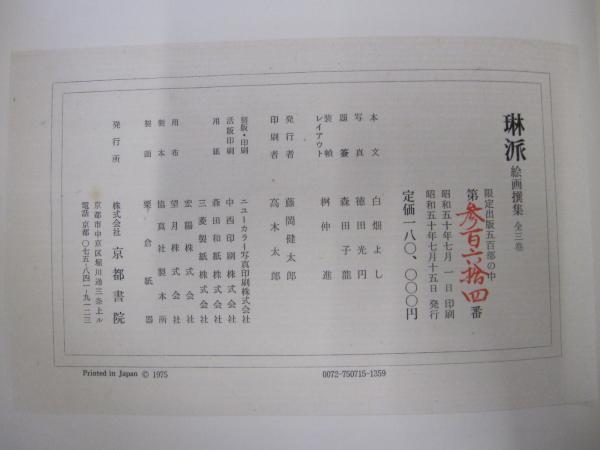 琳派 絵画撰集 全三巻
限定出版五百部の中
第参百六拾四番
昭和五十年七月一日 印刷
昭和五十年七月十五日 発行
定価一八〇、〇〇〇円
本文 白畑よし
写真 徳田光円
題簽 森田子龍
装幀・レイアウト 桝仲進
発行者 藤岡健太郎
印刷者 高木太郎
製版・印刷 ニューカラー写真印刷株式会社
活版印刷 中西印刷株式会社
用紙 森田和紙株式会社
三菱製紙株式会社
用布 宏陽株式会社
望月株式会社
製本 協真社製本所
製函 栗倉紙器
発行所 株式会社 京都書院
京都市中京区堀川通三条上ル
電話 京都 〇七五-八四一-九一二三
Printed in Japan © 1975
0072-750715-1359